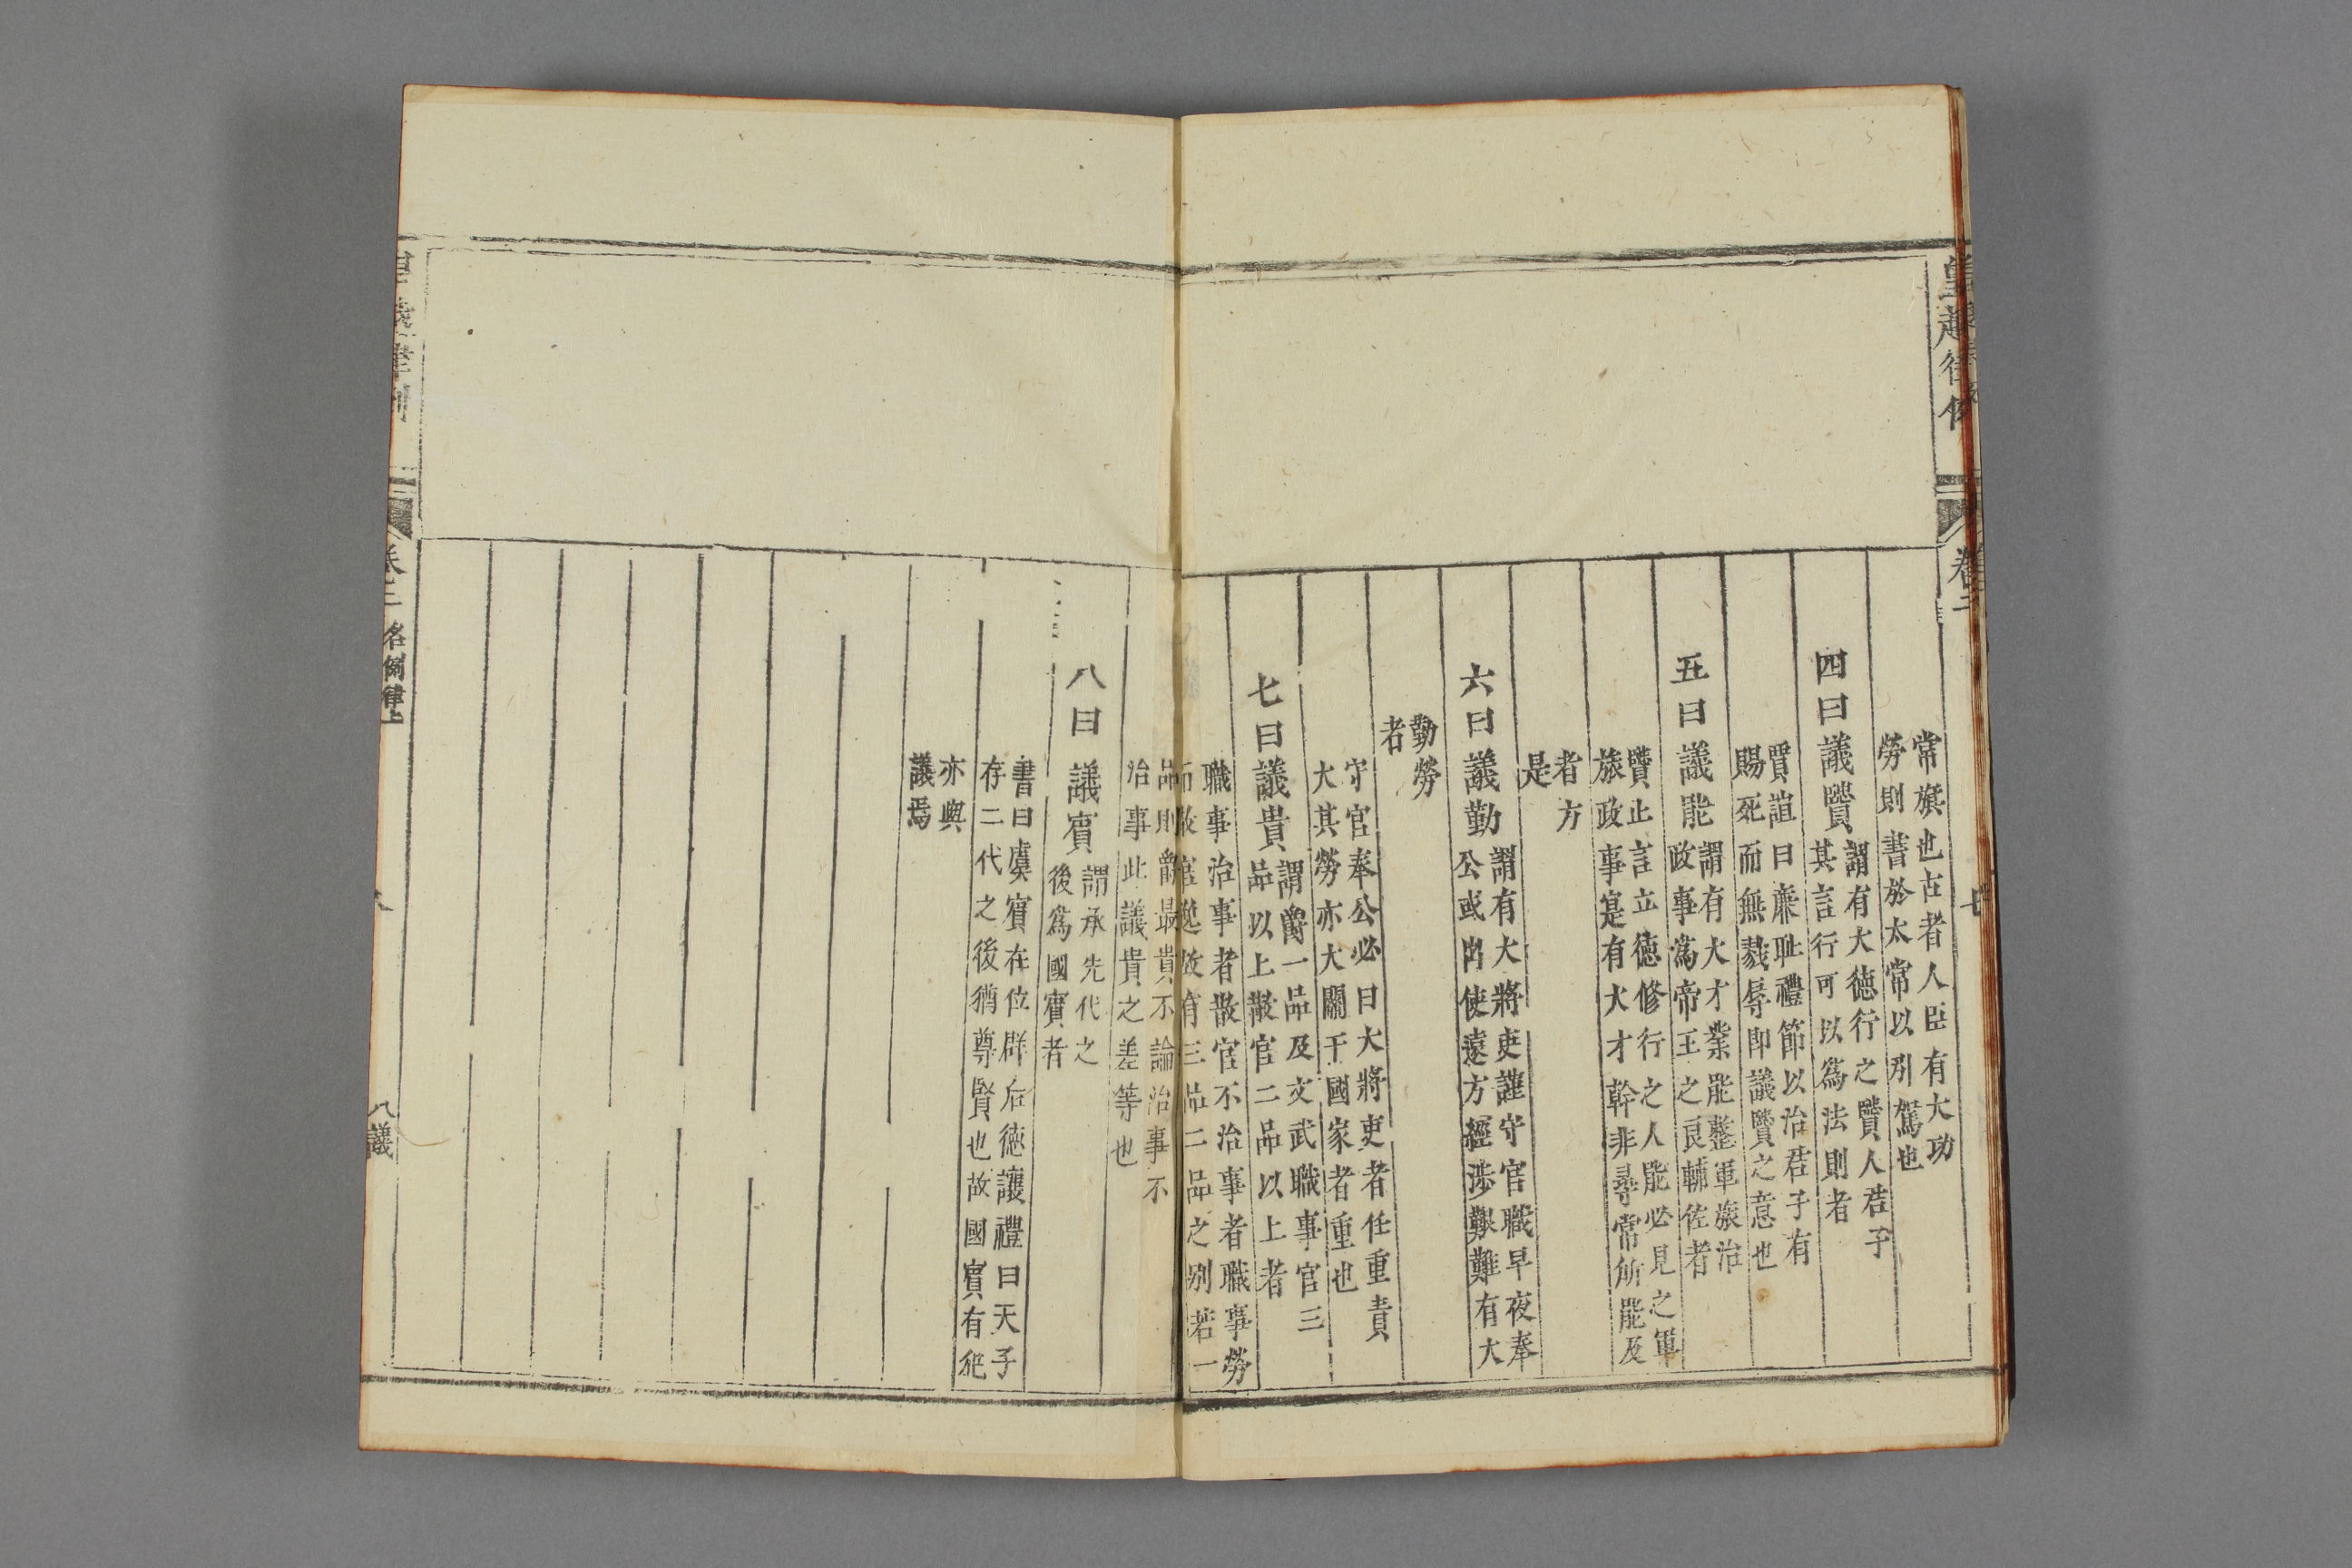 常旂也古者人臣有大功
勞則書於太常以別駕也
四曰議賢
謂有大德行之賢人君子
其言行可以爲法則者
賈誼曰廉耻禮節以治君子有
賜死而無戮辱即議賢之意也
五曰議能
謂有大才業能整軍旅治
政事爲帝王之良輔佐者
賢止言立德修行之人能必見之軍
旅政事寔有大才幹非尋常所能及
者方
是
六曰議勤
謂有大將吏謹守官職早夜奉
公或出使遠方經涉艱難有大
勤勞
者
守官奉公必曰大將吏者任重責
大其勞亦大關于國家者重也
七曰議貴
謂爵一品及文武職事官三
品以上散官二品以上者
職事治事者散官不治事者職事勞
而散官逸故有三品二品之别若一
品則爵最貴不論治事不
治事此議貴之差等也
八曰議賓
謂承先代之
後爲國賓者
書曰虞賓在位群后德讓禮曰天子
存二代之後猶尊賢也故國賓有犯
亦與
議焉
卷二
名例律上
八議
卷二
七